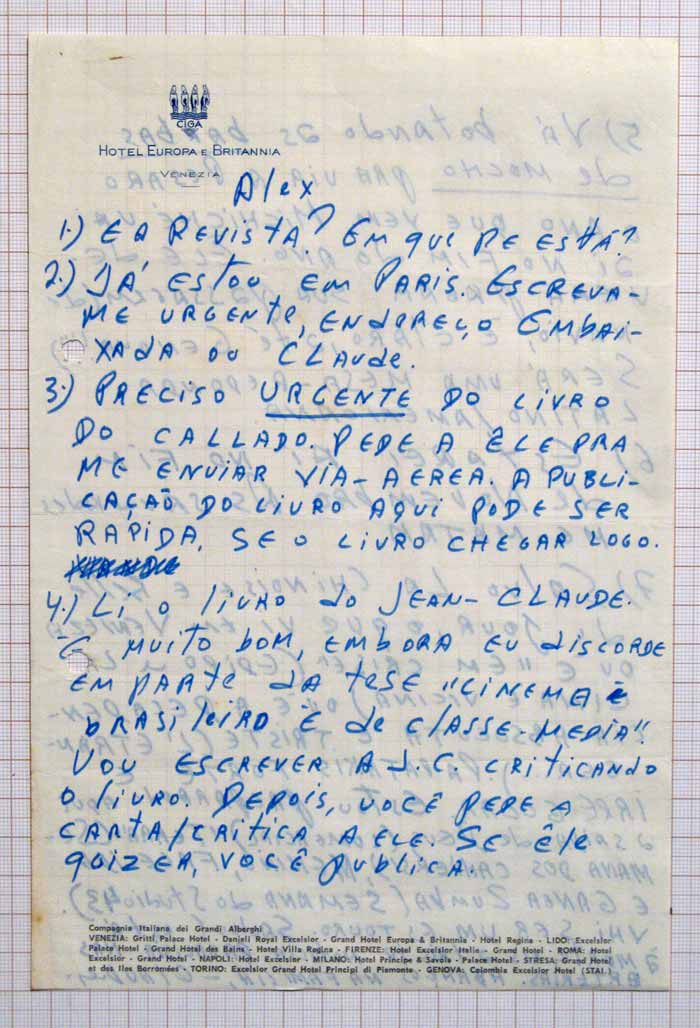 CIGA
HOTEL EUROPA E BRITANNIA
VENEZIA
Alex
1.) E A REVISTA? EM QUE PE ESTÁ?
2.) JÁ ESTOU EM PARIS. ESCREVA-
ME URGENTE, ENDEREÇO EMBAI-
XADA OU CLAUDE.
3.) PRECISO URGENTE DO LIVRO
DO CALLADO. PEDE A ÊLE PRA
ME ENVIAR VIA-AEREA. A PUBLI-
CAÇÃO DO LIVRO AQUI PODE SER
RAPIDA, SE O LIVRO CHEGAR LOGO.
4.) LI O LIVRO DO JEAN-CLAUDE.
É MUITO BOM, EMBORA EU DISCORDE
EM PARTE DA TESE "CINEMA
BRASILEIRO É DE CLASSE-MEDIA".
VOU ESCREVER A J.C. CRITICANDO
O LIVRO. DEPOIS, VOCÊ PEDE A
CARTA/CRITICA A ELE. SE ÊLE
QUIZER, VOCÊ PUBLICA.
Compagnia Italiana dei Grandi Alberghi
VENEZIA: Gritti Palace Hotel - Danieli Royal Excelsior - Grand Hotel Europa & Britannia - Hotel Regina - LIDO: Excelsior
Palace Hotel - Grand Hotel des Bains - Hotel Villa Regina - FIRENZE: Hotel Excelsior Italie - Grand Hotel - ROMA: Hotel
Excelsior - Grand Hotel - NAPOLI: Hotel Excelsior - MILANO: Hotel Principe & Savoia - Palace Hotel - STRESA: Grand Hotel
et des Iles Borromées - TORINO: Excelsior Grand Hotel Principi di Piemonte - GENOVA: Colombia Excelsior Hotel (STAI.)